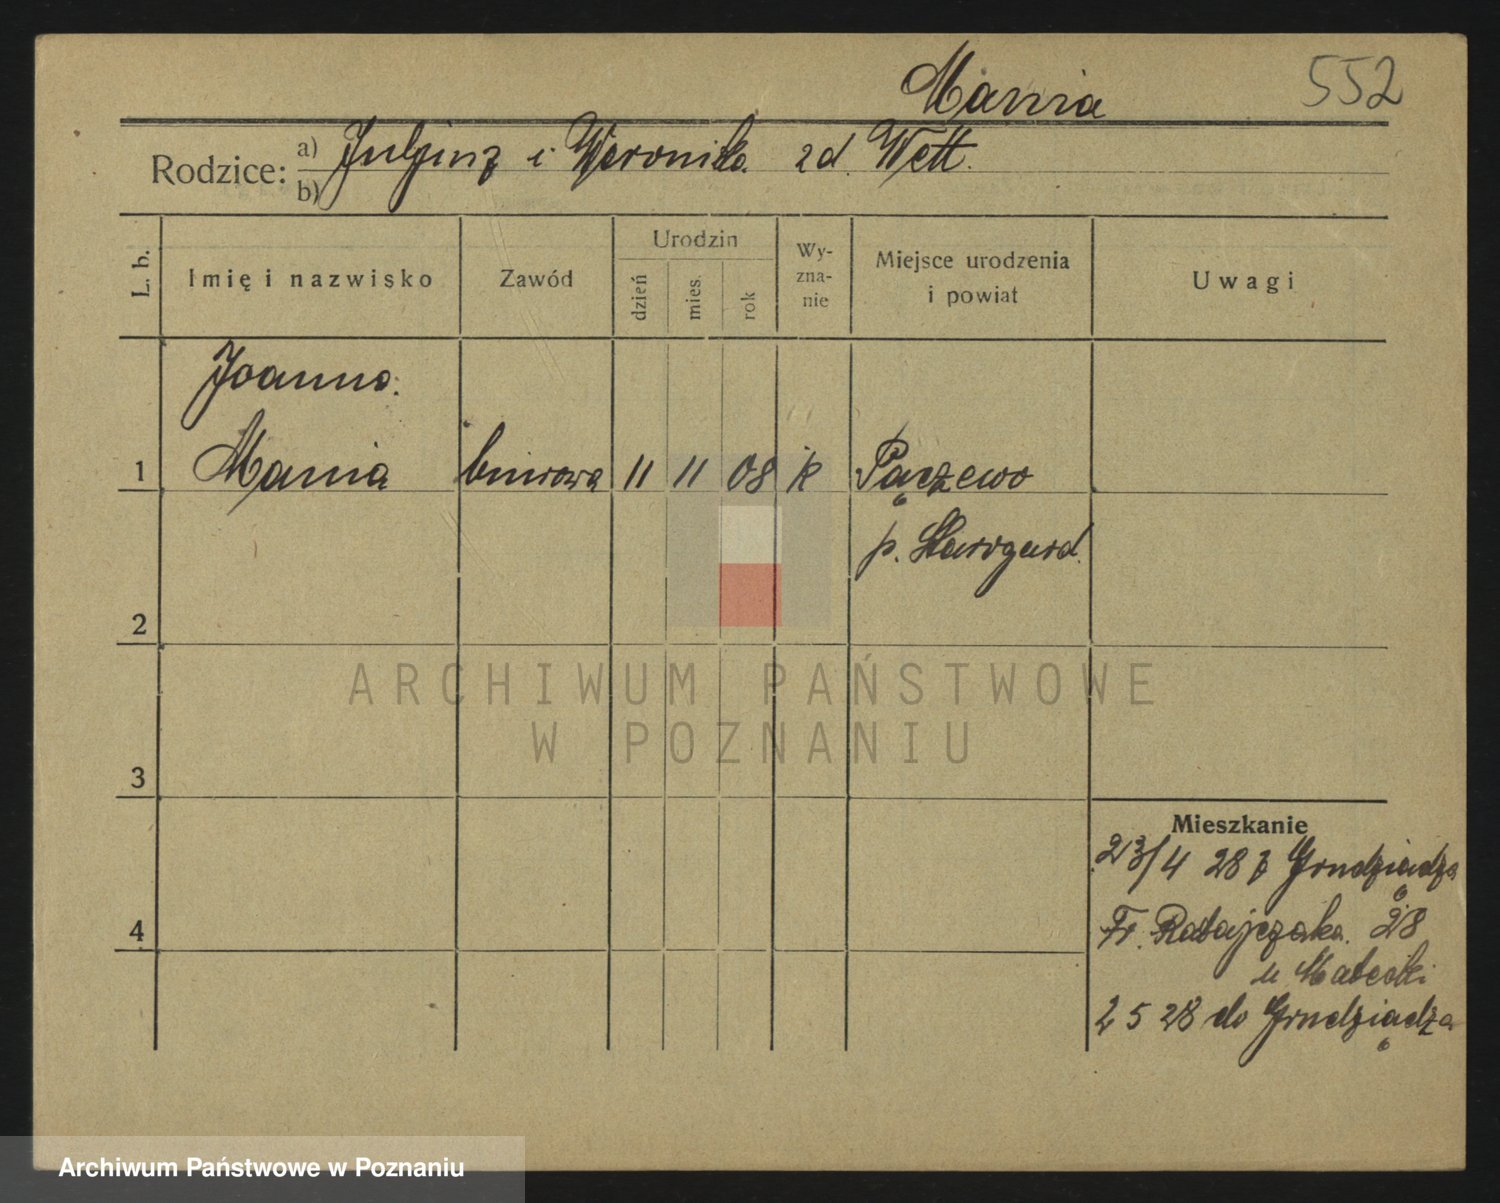 552
Mania
Rodzice: a) Juljusz i Weronika zd. Wett.
b)
L. b. Imię i nazwisko Zawód Urodzin dzień mies. rok Wyzna-nie Miejsce urodzenia i powiat Uwagi
Joanna
1 Mania biurowa 11 11 08 k Pączewo
p. Starogard.
2
3
4
Mieszkanie
23/4 28 z Grudziądza
Fr. Ratajczaka. 28
u Małecki
2 5 28 do Grudziądza
ARCHIWUM PAŃSTWOWE
W POZNANIU
Archiwum Państwowe w Poznaniu